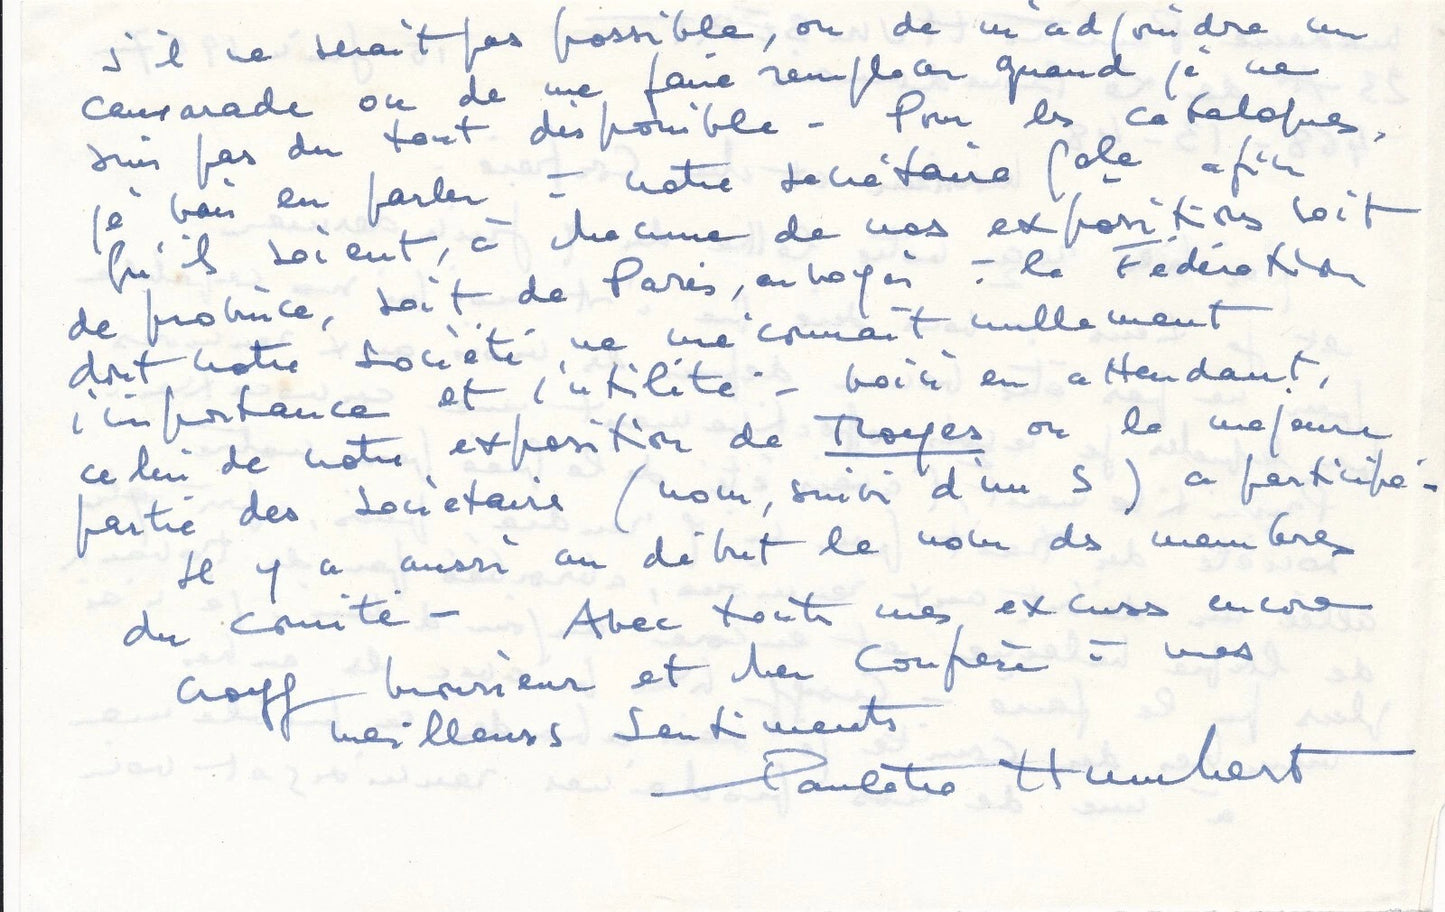 s'il ne serait pas possible, ou de m'adjoindre un
camarade ou de me faire remplacer quand je ne
suis pas du tout disponible - Pour les catalogues,
je vais en parler à notre secrétaire gale afin
qu'ils soient, à chacune de nos expositions soit
de province, soit de Paris, envoyés à la Fédération
dont notre Société ne méconnait nullement
l'importance et l'utilité - voici en attendant,
celui de notre exposition de Troyes où la majeure
partie des Sociétaires (nom, suivi d'un S) a participé -
Il y a aussi au début le nom des membres
du comité - Avec toutes mes excuses encore
croyez Monsieur et cher Confrère à mes
meilleurs sentiments
Paulette Humbert